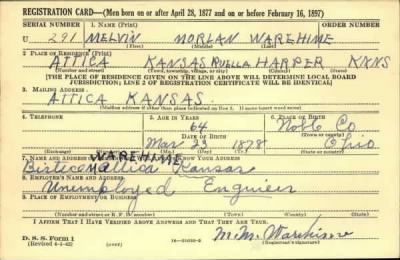 REGISTRATION CARD—(Men born on or after April 28, 1877 and on or before February 16, 1897)
SERIAL NUMBER 1. NAME (Print) ORDER NUMBER
U 291 MELVIN MORLAN WAREHIME
(First) (Middle) (Last)
2. PLACE OF RESIDENCE (Print)
ATTICA KANSAS HARPER KANS
(Number and street) (Town, township, village, or city) (County) (State)
[THE PLACE OF RESIDENCE GIVEN ON THE LINE ABOVE WILL DETERMINE LOCAL BOARD
JURISDICTION; LINE 2 OF REGISTRATION CERTIFICATE WILL BE IDENTICAL]
3. MAILING ADDRESS
ATTICA KANSAS.
[Mailing address if other than place indicated on line 2. If same insert word same]
4. TELEPHONE 5. AGE IN YEARS 6. PLACE OF BIRTH
64 Noble Co
DATE OF BIRTH (Town or county)
Mar 23 1878 Ohio
(Exchange) (Number) (Mo.) (Day) (Yr.) (State or country)
7. NAME AND ADDRESS OF PERSON WHO WILL ALWAYS KNOW YOUR ADDRESS
WAREHIME
Attica Kansas
8. EMPLOYER'S NAME AND ADDRESS
Unemployed Engineer
9. PLACE OF EMPLOYMENT OR BUSINESS
(Number and street or R. F. D. number) (Town) (County) (State)
I AFFIRM THAT I HAVE VERIFIED ABOVE ANSWERS AND THAT THEY ARE TRUE.
D. S. S. Form 1
(Revised 4-1-42) M.M. Warehime
(Registrant's signature)